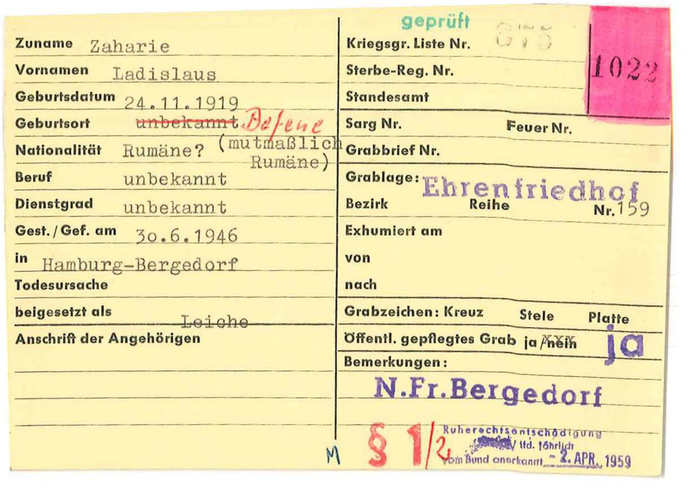 geprüft
Zuname Zaharie
Vornamen Ladislaus
Geburtsdatum 24.11.1919
Geburtsort unbekannt Defene
Nationalität Rumäne? (mutmaßlich
Rumäne)
Beruf unbekannt
Dienstgrad unbekannt
Gest./Gef. am 30.6.1946
in Hamburg-Bergedorf
Todesursache
beigesetzt als Leiche
Anschrift der Angehörigen
Kriegsgr. Liste Nr. 675
1022
Sterbe-Reg. Nr.
Standesamt
Sarg Nr. Feuer Nr.
Grabbrief Nr.
Grablage: Ehrenfriedhof
Bezirk Reihe Nr. 159
Exhumiert am
von
nach
Grabzeichen: Kreuz Stele Platte
Öffentl. gepflegtes Grab ja/nein ja
Bemerkungen:
N.Fr.Bergedorf
M § 1/2
Ruherechtsentschädigung
lfd. jährlich
vom Bund anerkannt - 2. APR. 1959